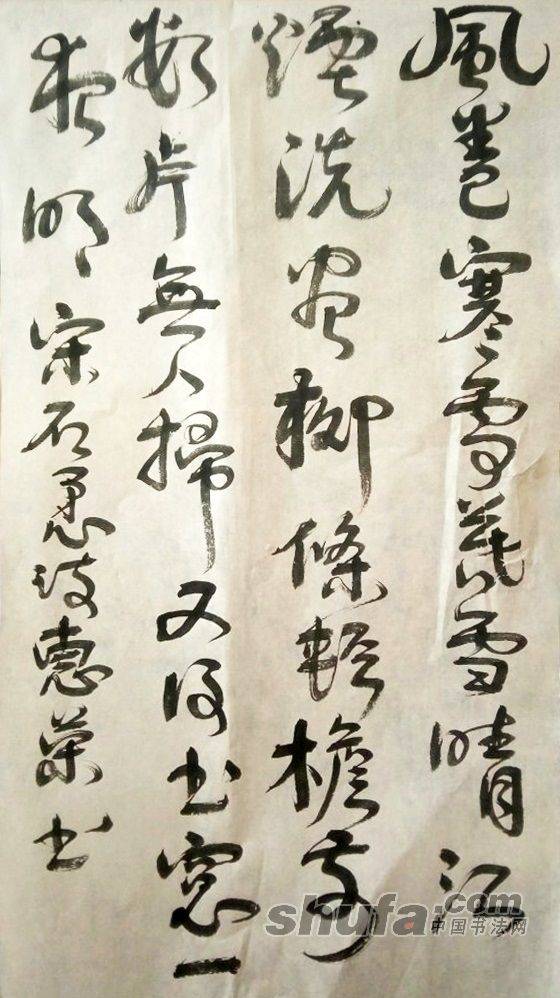 風卷寒雲暮雪晴江
煙洗尽柳條輕檐前
數片無人掃又得書窗一
夜明 宋石愚 惠荣書
shufa.com
中国书法网